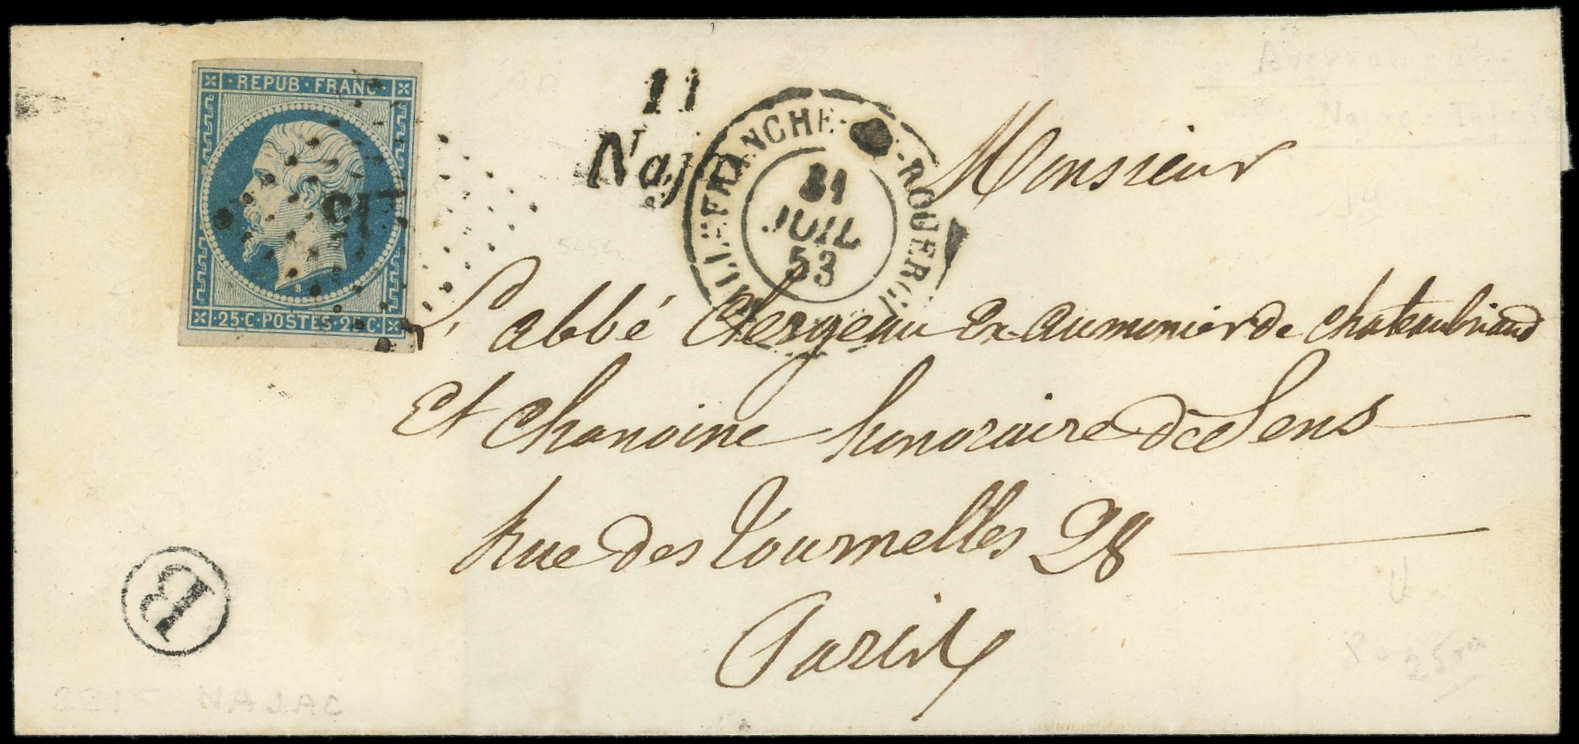 REPUB·FRANC
25·C·POSTES·25·C
11
Naj
VILLEFRANCHE- -ROUERGUE
31
JUIL
53
Monsieur
L'abbé Clergeau Ex aumonier de chateaubriand
Et chanoine honoraire de Sens
Rue des Tournelles 28
Paris
B
NAJAC